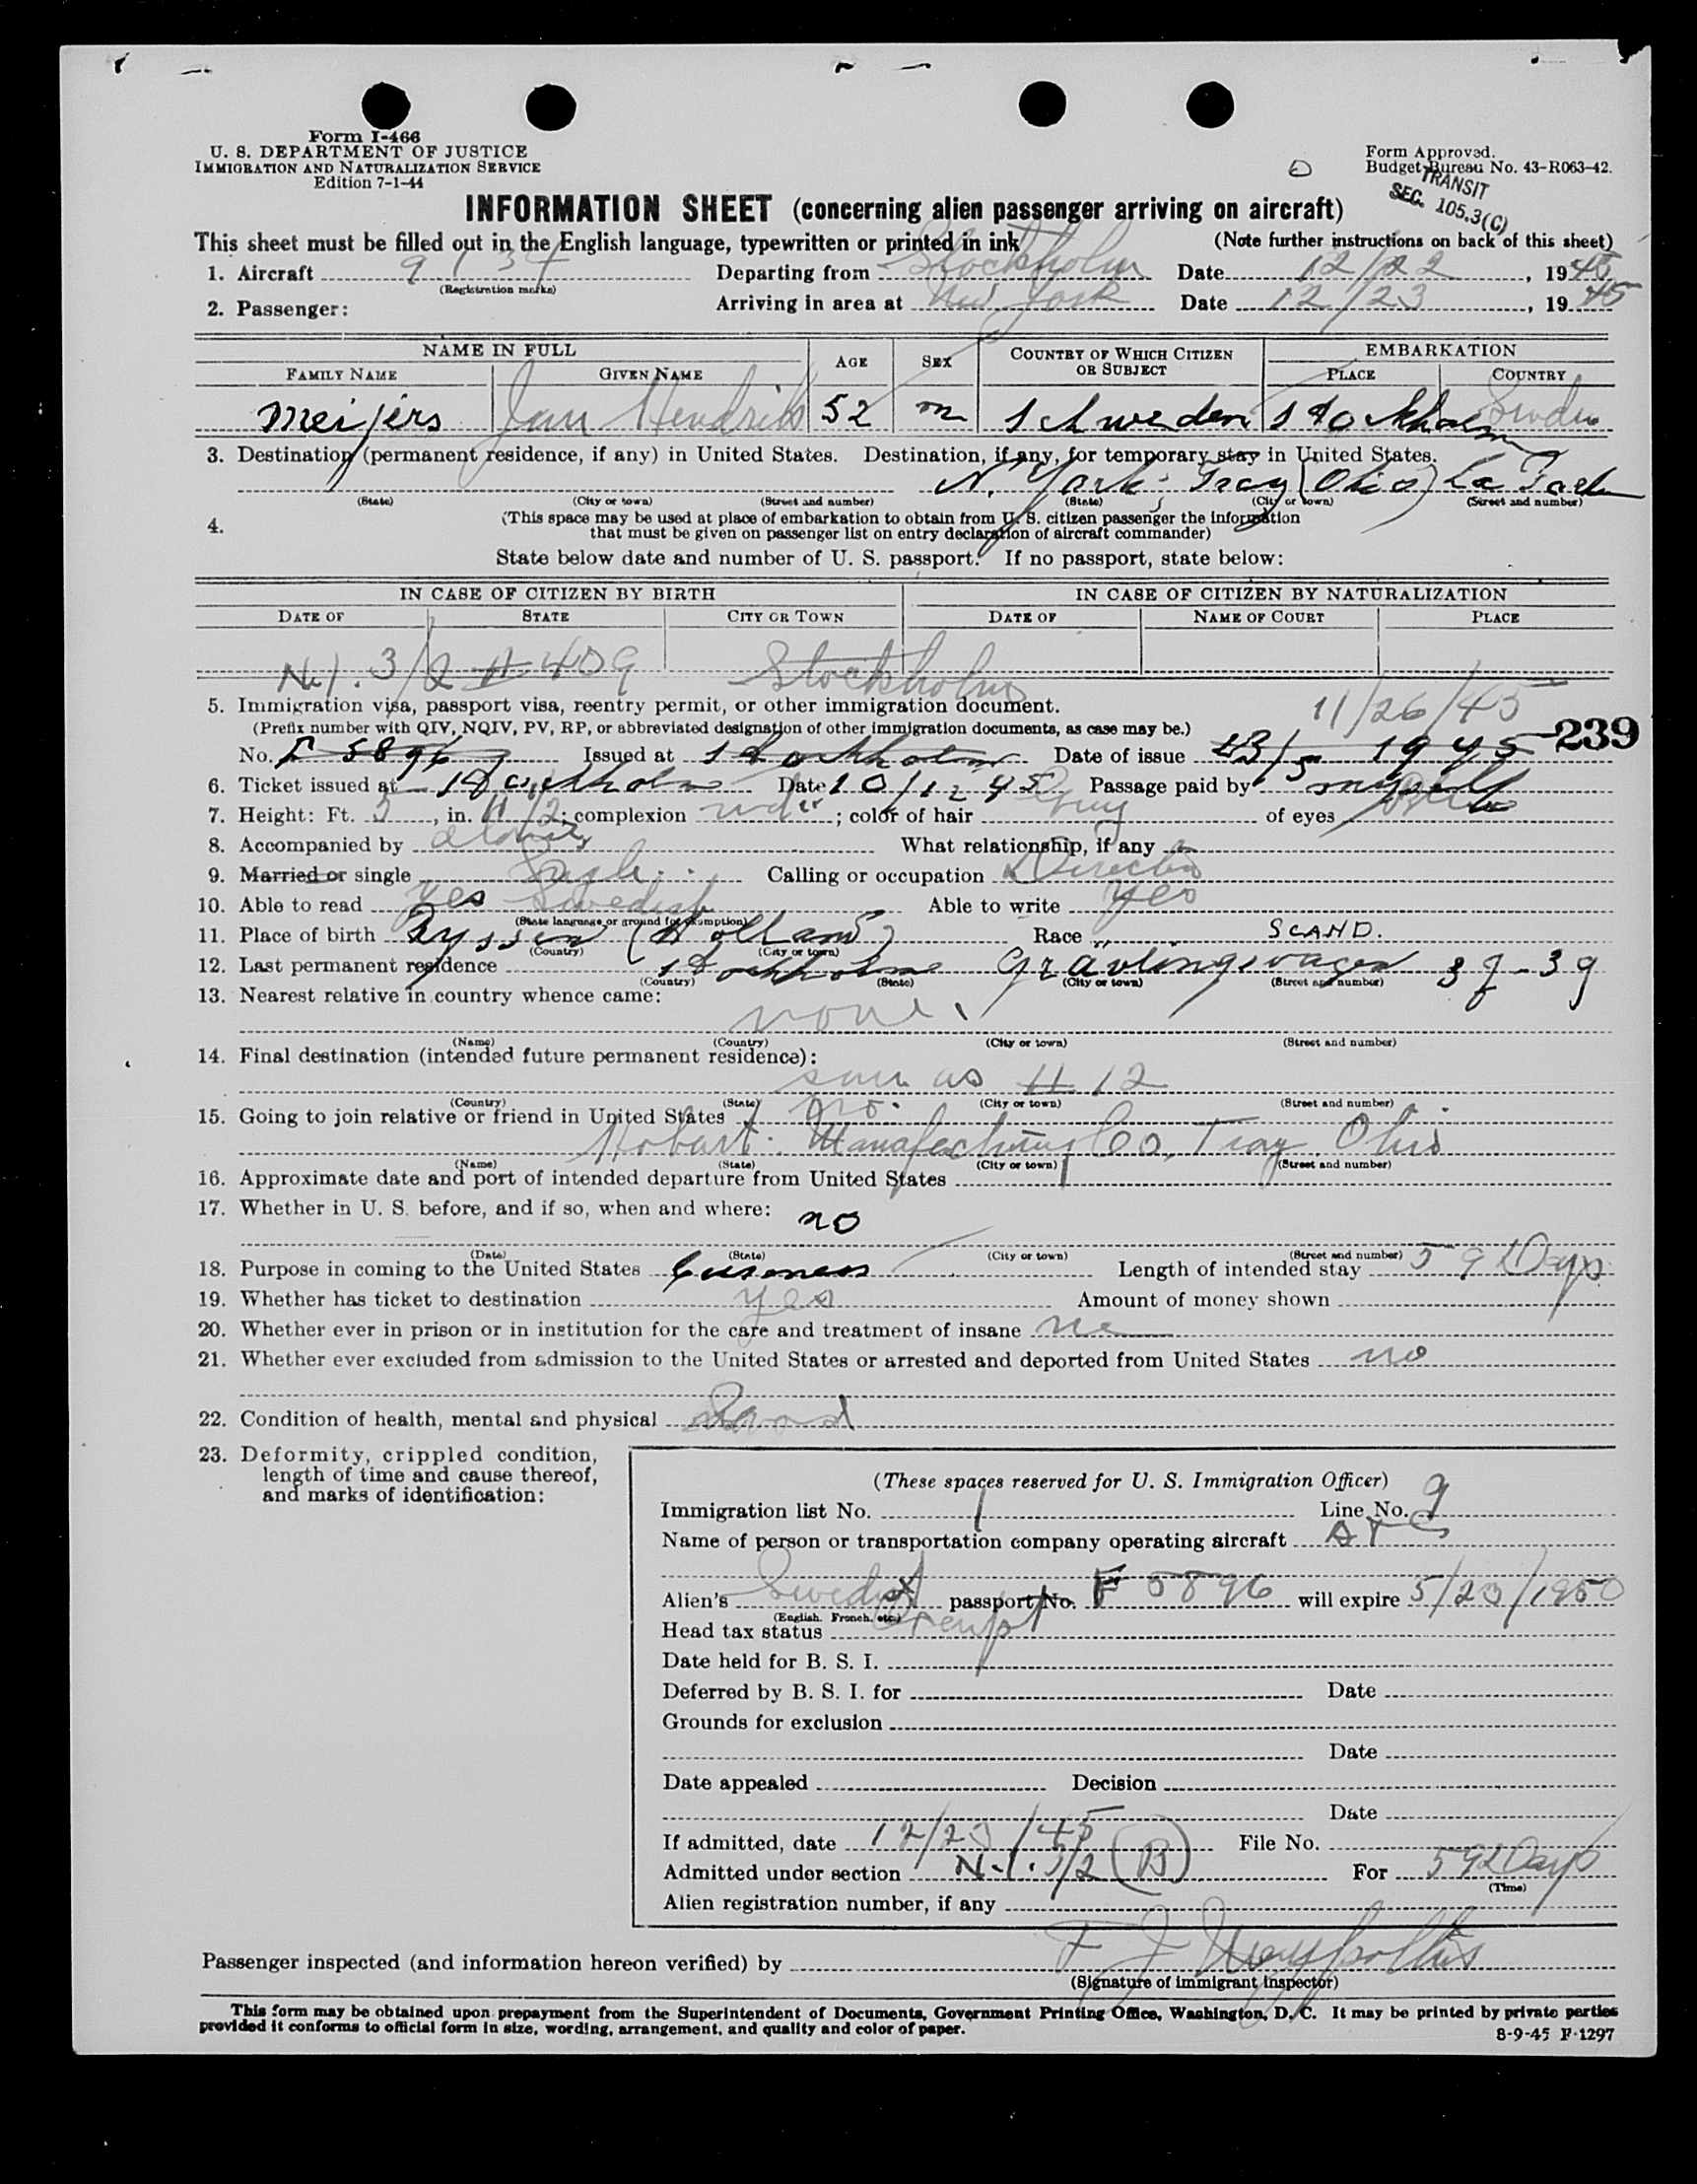 Form I-466
U. S. DEPARTMENT OF JUSTICE
IMMIGRATION AND NATURALIZATION SERVICE
Edition 7-1-44
Form Approved.
Budget Bureau No. 43-R063-42.
TRANSIT
SEC. 105.3(C)
INFORMATION SHEET (concerning alien passenger arriving on aircraft)
This sheet must be filled out in the English language, typewritten or printed in ink (Note further instructions on back of this sheet)
1. Aircraft 9134 Departing from Stockholm Date 12/22, 1945
(Registration marks)
2. Passenger: Arriving in area at New York Date 12/23, 1945
NAME IN FULL AGE SEX COUNTRY OF WHICH CITIZEN OR SUBJECT EMBARKATION
FAMILY NAME GIVEN NAME PLACE COUNTRY
Meijers Jan Hendrik 52 m Schweden Stockholm Sweden
3. Destination (permanent residence, if any) in United States. Destination, if any, for temporary stay in United States.
N. York Troy (Ohio)
(State) (City or town) (Street and number) (State) (City or town) (Street and number)
4. (This space may be used at place of embarkation to obtain from U. S. citizen passenger the information
that must be given on passenger list on entry declaration of aircraft commander)
State below date and number of U. S. passport. If no passport, state below:
IN CASE OF CITIZEN BY BIRTH IN CASE OF CITIZEN BY NATURALIZATION
DATE OF STATE CITY OR TOWN DATE OF NAME OF COURT PLACE
N.I. 3/2 # 409 Stockholm
5. Immigration visa, passport visa, reentry permit, or other immigration document. 11/26/45
(Prefix number with QIV, NQIV, PV, RP, or abbreviated designation of other immigration documents, as case may be.)
239
No. F 5896 Issued at Stockholm Date of issue 23/5 1945
6. Ticket issued at Stockholm Date 10/12 45 Passage paid by myself
7. Height: Ft. 5, in. 11 1/2; complexion ; color of hair Grey of eyes Blue
8. Accompanied by alone What relationship, if any
9. Married or single Single Calling or occupation Director
10. Able to read yes Swedish Able to write yes
(State language or ground for exemption)
11. Place of birth Ryssen (Holland) Race SCAND.
(Country) (City or town)
12. Last permanent residence Stockholm Grävlingsvägen 37-39
(Country) (State) (City or town) (Street and number)
13. Nearest relative in country whence came:
none
(Name) (Country) (City or town) (Street and number)
14. Final destination (intended future permanent residence):
same as # 12
(Country) (State) (City or town) (Street and number)
15. Going to join relative or friend in United States no.
Hobart Manufacturing Co, Troy Ohio
(Name) (State) (City or town) (Street and number)
16. Approximate date and port of intended departure from United States
17. Whether in U. S. before, and if so, when and where: no
(Date) (State) (City or town) (Street and number)
18. Purpose in coming to the United States Business Length of intended stay 59 Days
19. Whether has ticket to destination yes Amount of money shown
20. Whether ever in prison or in institution for the care and treatment of insane no
21. Whether ever excluded from admission to the United States or arrested and deported from United States no
22. Condition of health, mental and physical Good
23. Deformity, crippled condition,
length of time and cause thereof,
and marks of identification:
(These spaces reserved for U. S. Immigration Officer)
Immigration list No. 1 Line No. 9
Name of person or transportation company operating aircraft ATC
Alien's Swedish passport No. F 5896 will expire 5/23/1950
(English, French, etc.)
Head tax status Exempt
Date held for B. S. I.
Deferred by B. S. I. for Date
Grounds for exclusion
Date
Date appealed Decision
Date
If admitted, date 12/23/45 File No.
Admitted under section N.I. 3/2 (B) For 59 Days
(Time)
Alien registration number, if any
Passenger inspected (and information hereon verified) by
(Signature of immigrant inspector)
This form may be obtained upon prepayment from the Superintendent of Documents, Government Printing Office, Washington, D. C. It may be printed by private parties
provided it conforms to official form in size, wording, arrangement, and quality and color of paper.
8-9-45 F-1297